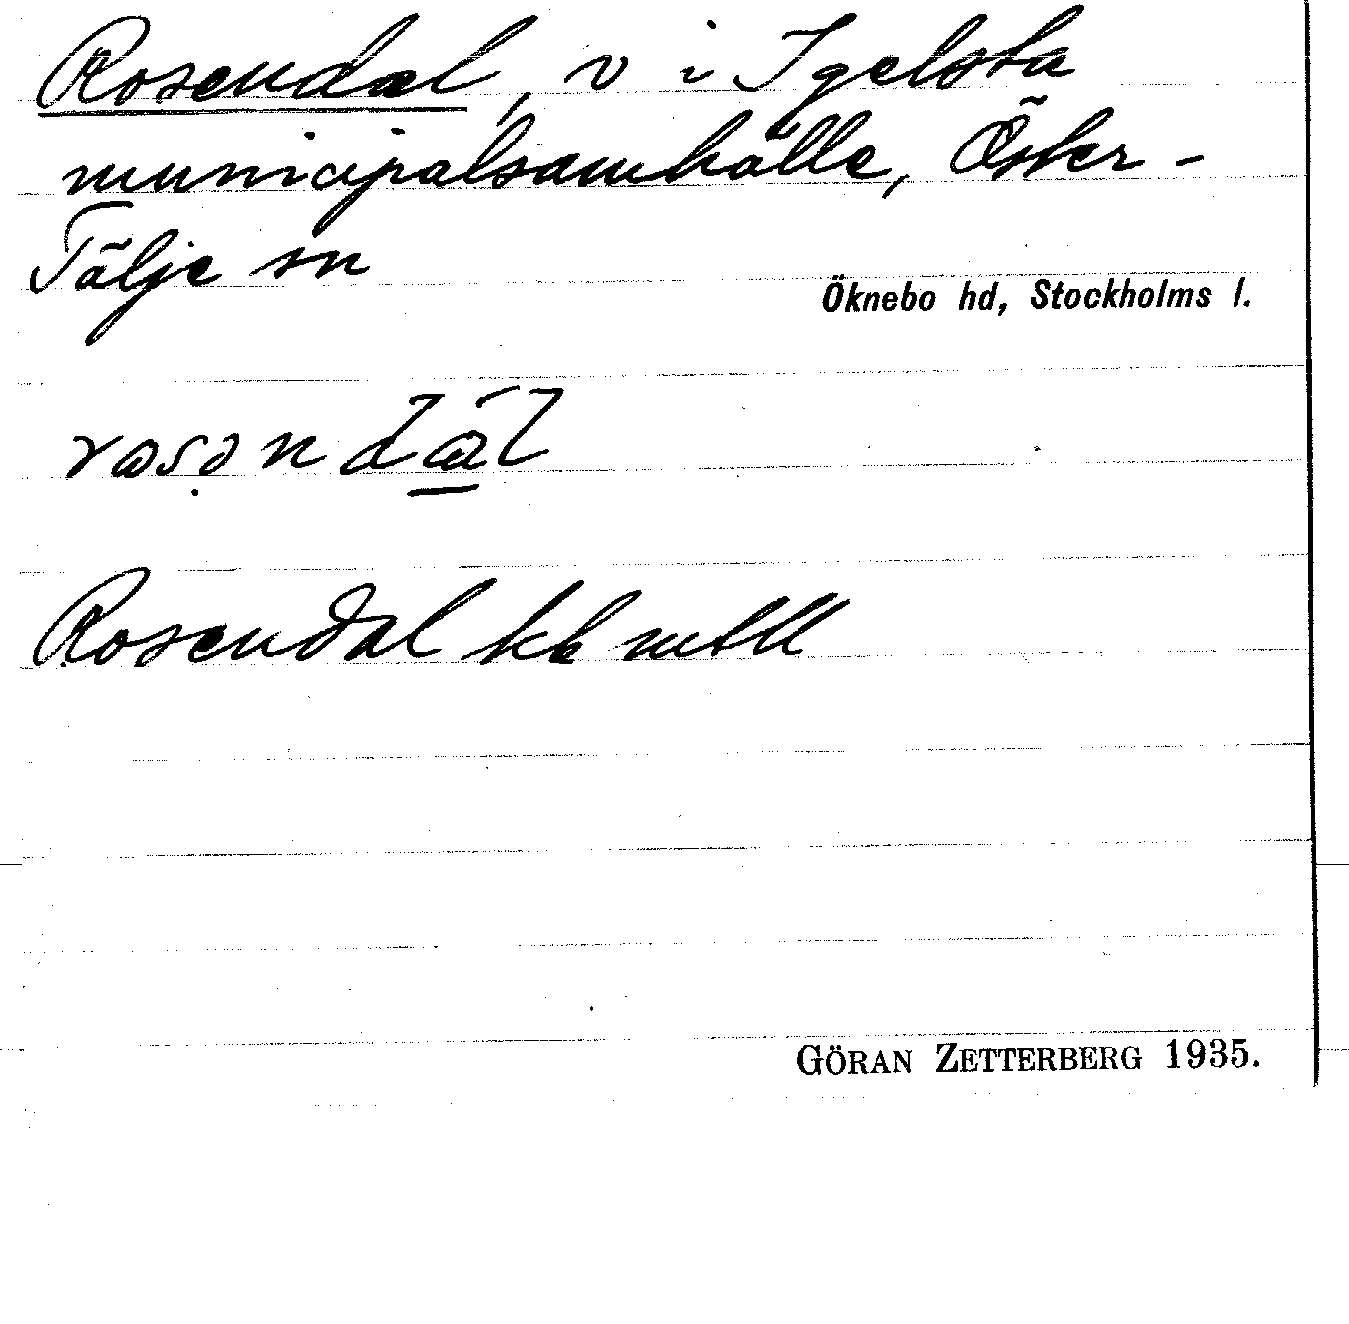 Rosendal, v i Igelsta
municipalsamhälle, Öster-
Tälje sn
Öknebo hd, Stockholms l.
Rosendal
GÖRAN ZETTERBERG 1935.